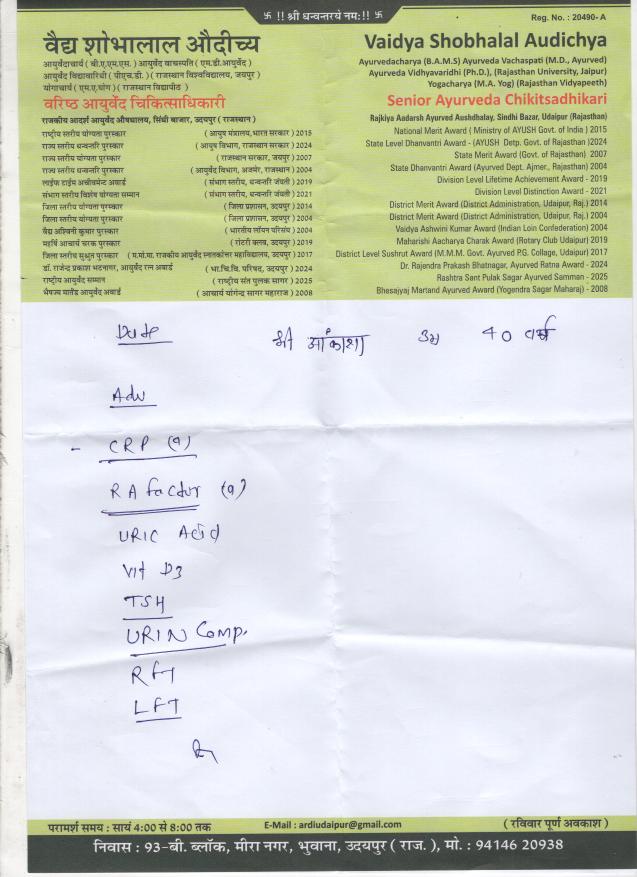 卐 !! श्री धन्वन्तरये नमः!! 卐
Reg. No. : 20490-A
वैद्य शोभालाल औदीच्य
आयुर्वेदाचार्य ( बी.ए.एम.एस. ) आयुर्वेद वाचस्पति ( एम.डी.आयुर्वेद )
आयुर्वेद विद्यावारिधी ( पीएच.डी. ) ( राजस्थान विश्वविद्यालय, जयपुर )
योगाचार्य ( एम.ए.योग ) ( राजस्थान विद्यापीठ )
वरिष्ठ आयुर्वेद चिकित्साधिकारी
राजकीय आदर्श आयुर्वेद औषधालय, सिंधी बाजार, उदयपुर ( राजस्थान )
राष्ट्रीय स्तरीय योग्यता पुरस्कार ( आयुष मंत्रालय, भारत सरकार ) 2015
राज्य स्तरीय धन्वन्तरि पुरस्कार ( आयुष विभाग, राजस्थान सरकार ) 2024
राज्य स्तरीय योग्यता पुरस्कार ( राजस्थान सरकार, जयपुर ) 2007
राज्य स्तरीय धन्वन्तरि पुरस्कार ( आयुर्वेद विभाग, अजमेर, राजस्थान ) 2004
लाईफ टाईम अचीवमेन्ट अवार्ड ( संभाग स्तरीय, धन्वन्तरि जंयती ) 2019
संभाग स्तरीय विशेष योग्यता सम्मान ( संभाग स्तरीय, धन्वन्तरि जंयती ) 2021
जिला स्तरीय योग्यता पुरस्कार ( जिला प्रशासन, उदयपुर ) 2014
जिला स्तरीय योग्यता पुरस्कार ( जिला प्रशासन, उदयपुर ) 2004
वैद्य अश्विनी कुमार पुरस्कार ( भारतीय लॉयन परिसंघ ) 2004
महर्षि आचार्य चरक पुरस्कार ( रोटरी क्लब, उदयपुर ) 2019
जिला स्तरीय सुश्रुत पुरस्कार ( म.मो.मा. राजकीय आयुर्वेद स्नातकोत्तर महाविद्यालय, उदयपुर ) 2017
डॉ. राजेन्द्र प्रकाश भटनागर, आयुर्वेद रत्न अवार्ड ( भा.चि.वि. परिषद, उदयपुर ) 2024
राष्ट्रीय आयुर्वेद सम्मान ( राष्ट्रीय संत पुलक सागर ) 2025
भैषज्य मार्तंड आयुर्वेद अवार्ड ( आचार्य योगेन्द्र सागर महाराज ) 2008
Vaidya Shobhalal Audichya
Ayurvedacharya (B.A.M.S) Ayurveda Vachaspati (M.D., Ayurved)
Ayurveda Vidhyavaridhi (Ph.D.), (Rajasthan University, Jaipur)
Yogacharya (M.A. Yog) (Rajasthan Vidyapeeth)
Senior Ayurveda Chikitsadhikari
Rajkiya Aadarsh Ayurved Aushdhalay, Sindhi Bazar, Udaipur (Rajasthan)
National Merit Award ( Ministry of AYUSH Govt. of India ) 2015
State Level Dhanvantri Award - (AYUSH Detp. Govt. of Rajasthan )2024
State Merit Award (Govt. of Rajasthan) 2007
State Dhanvantri Award (Ayurved Dept. Ajmer., Rajasthan) 2004
Division Level Lifetime Achievement Award - 2019
Division Level Distinction Award - 2021
District Merit Award (District Administration, Udaipur, Raj.) 2014
District Merit Award (District Administration, Udaipur, Raj.) 2004
Vaidya Ashwini Kumar Award (Indian Loin Confederation) 2004
Maharishi Aacharya Charak Award (Rotary Club Udaipur) 2019
District Level Sushrut Award (M.M.M. Govt. Ayurved P.G. Collage, Udaipur) 2017
Dr. Rajendra Prakash Bhatnagar, Ayurved Ratna Award - 2024
Rashtra Sant Pulak Sagar Ayurved Samman - 2025
Bhesajyaj Martand Ayurved Award (Yogendra Sagar Maharaj) - 2008
श्री आंकाशा उम्र 40 वर्ष
Adv
- CRP (q)
RA factor (q)
URIC Acid
Vit D3
TSH
URIN Comp.
RFT
LFT
परामर्श समय : सायं 4:00 से 8:00 तक
E-Mail : ardiudaipur@gmail.com
( रविवार पूर्ण अवकाश )
निवास : 93-बी. ब्लॉक, मीरा नगर, भुवाना, उदयपुर ( राज. ), मो. : 94146 20938